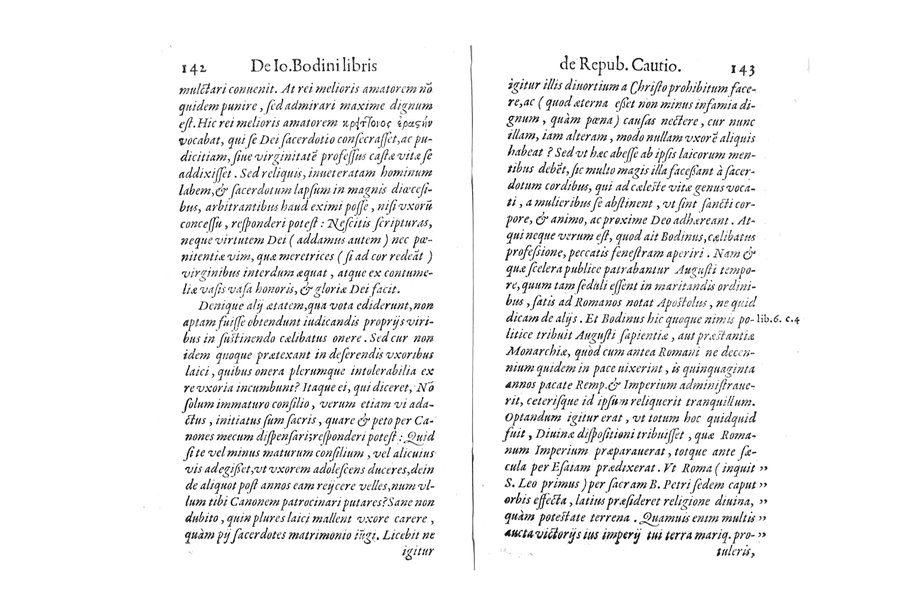 142 De Io. Bodini libris
mulctari conuenit. At rei melioris amatorem nõ
quidem punire, sed admirari maxime dignum
est. Hic rei melioris amatorem
vocabat, qui se Dei sacerdotio consecrasset, ac pu-
dicitiam, siue virginitatẽ professus castæ vitæ se
addixisset. Sed reliquis, inueteratam hominum
labem, & sacerdotum lapsum in magnis diœcesi-
bus, arbitrantibus haud eximi posse, nisi vxorũ
concessu, responderi potest: Nescitis scripturas,
neque virtutem Dei (addamus autem) nec pœ-
nitentiæ vim, quæ meretrices (si ad cor redeãt)
virginibus interdum æquat, atque ex contume-
liæ vasis vasa honoris, & gloriæ Dei facit.
Denique alij ætatem, qua vota ediderunt, non
aptam fuisse obtendunt iudicandis proprijs viri-
bus in sustinendo cælibatus onere. Sed cur non
idem quoque prætexant in deserendis vxoribus
laici, quibus onera plerumque intolerabilia ex
re vxoria incumbunt? Itaque ei, qui diceret, Nõ
solum immaturo consilio, verum etiam vi ada-
ctus, initiatus sum sacris, quare & peto per Ca-
nones mecum dispensari; responderi potest: Quid
si te vel minus maturum consilium, vel alicuius
vis adegisset, vt vxorem adolescens duceres, dein
de aliquot post annos eam reijcere velles, num vl-
lum tibi Canonem patrocinari putares? Sane non
dubito, quin plures laici mallent vxore carere,
quàm pij sacerdotes matrimonio iũgi. Licebit ne
igitur
de Repub. Cautio. 143
igitur illis diuortium a Christo prohibitum face-
re, ac (quod æterna esset non minus infamia di-
gnum, quàm pœna) causas nectere, cur nunc
illam, iam alteram, modo nullam vxorẽ aliquis
habeat? Sed vt hæc abesse ab ipsis laicorum men-
tibus debẽt, sic multo magis illa facessant à sacer-
dotum cordibus, qui ad cæleste vitæ genus voca-
ti, a mulieribus se abstinent, vt sint sancti cor-
pore, & animo, ac proxime Deo adhæreant. At-
qui neque verum est, quod ait Bodinus, cælibatus
professione, peccatis fenestram aperiri. Nam &
quæ scelera publice patrabantur Augusti tempo-
re, quum tam seduli essent in maritandis ordini-
bus, satis ad Romanos notat Apostolus, ne quid
dicam de alijs. Et Bodinus hic quoque nimis po- lib. 6. c. 4
litice tribuit Augusti sapientiæ, aut præstantiæ
Monarchiæ, quòd cum antea Romani ne decen-
nium quidem in pace uixerint, is quinquaginta
annos pacate Remp. & Imperium administraue-
rit, ceterisque id ipsum reliquerit tranquillum.
Optandum igitur erat, vt totum hoc quidquid
fuit, Diuinæ dispositioni tribuisset, quæ Roma-
num Imperium præparauerat, totque ante sæ-
cula per Esaiam prædixerat. Vt Roma (inquit ”
S. Leo primus) per sacram B. Petri sedem caput ”
orbis effecta, latius præsideret religione diuina, ”
quàm potestate terrena. Quamuis enim multis ”
aucta victorijs ius imperij tui terra mariq. pro- ”
tuleris,